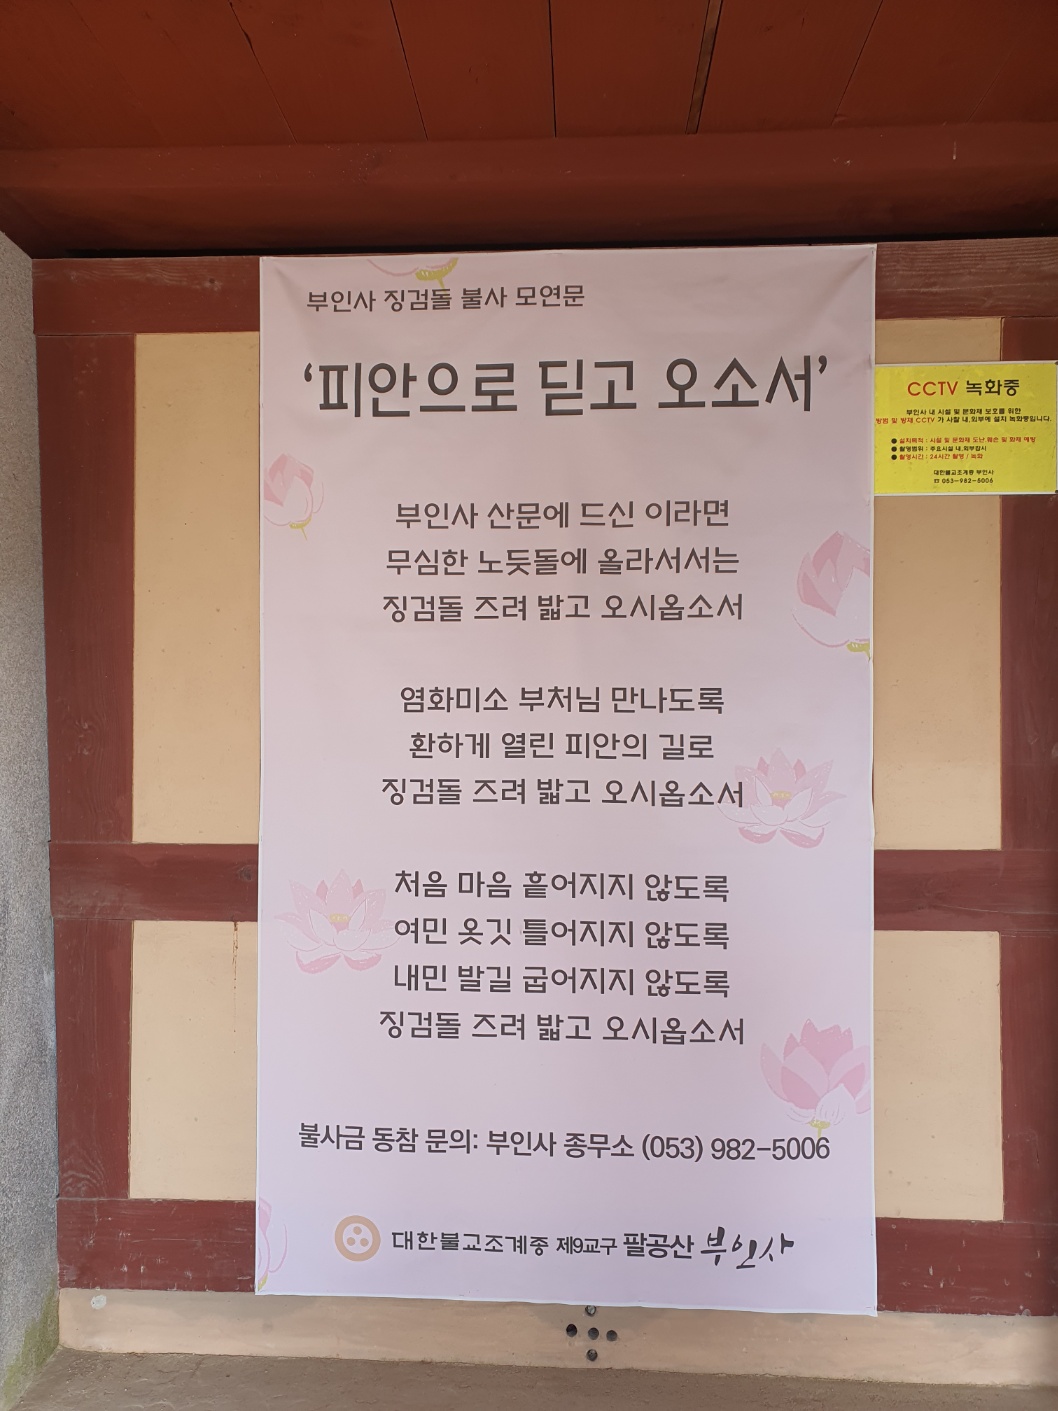 부인사 징검돌 불사 모연문
‘피안으로 딛고 오소서’
부인사 산문에 드신 이라면
무심한 노듯돌에 올라서서는
징검돌 즈려 밟고 오시옵소서
염화미소 부처님 만나도록
환하게 열린 피안의 길로
징검돌 즈려 밟고 오시옵소서
처음 마음 흩어지지 않도록
여민 옷깃 틀어지지 않도록
내민 발길 굽어지지 않도록
징검돌 즈려 밟고 오시옵소서
불사금 동참 문의: 부인사 종무소 (053) 982-5006
대한불교조계종 제9교구 팔공산 부인사
CCTV 녹화중
부인사 내 시설 및 문화재 보호를 위한
방범 및 방재 CCTV 가 사찰 내,외부에 설치 녹화중입니다.
● 설치목적 : 시설 및 문화재 도난,훼손 및 화재 예방
● 촬영범위 : 주요시설 내,외부감시
● 촬영시간 : 24시간 촬영 / 녹화
대한불교조계종 부인사
☎ 053-982-5006